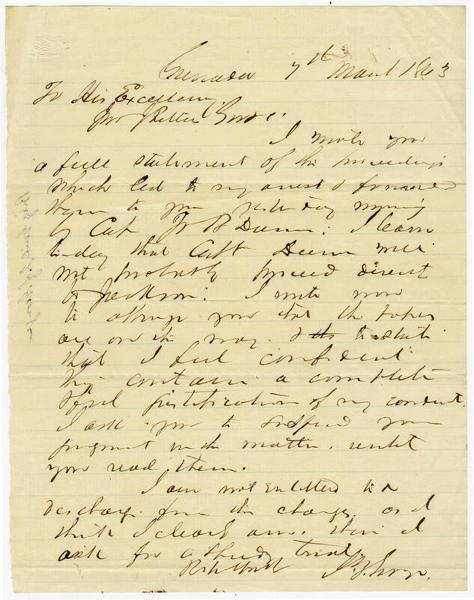 Grenada 7th March 1863
To His Excellency
Jno J Pettus Gov &c.
I wrote you
a full statement of the proceedings
which led to my arrest & forwarded
them to you yesterday morning
by Capt Dunn. I learn
to-day that Capt Dunn will
not probably proceed direct
to Jackson. I write now
to apprize you that the papers
are on the way. & to state
that I feel confident
they contain a complete
legal justification of my conduct.
I ask you to suspend your
judgment in the matter until
you read them.
I am not entitled to a
discharge from the charge, as I
think I clearly am, then I
ask for a speedy trial
Respectfully